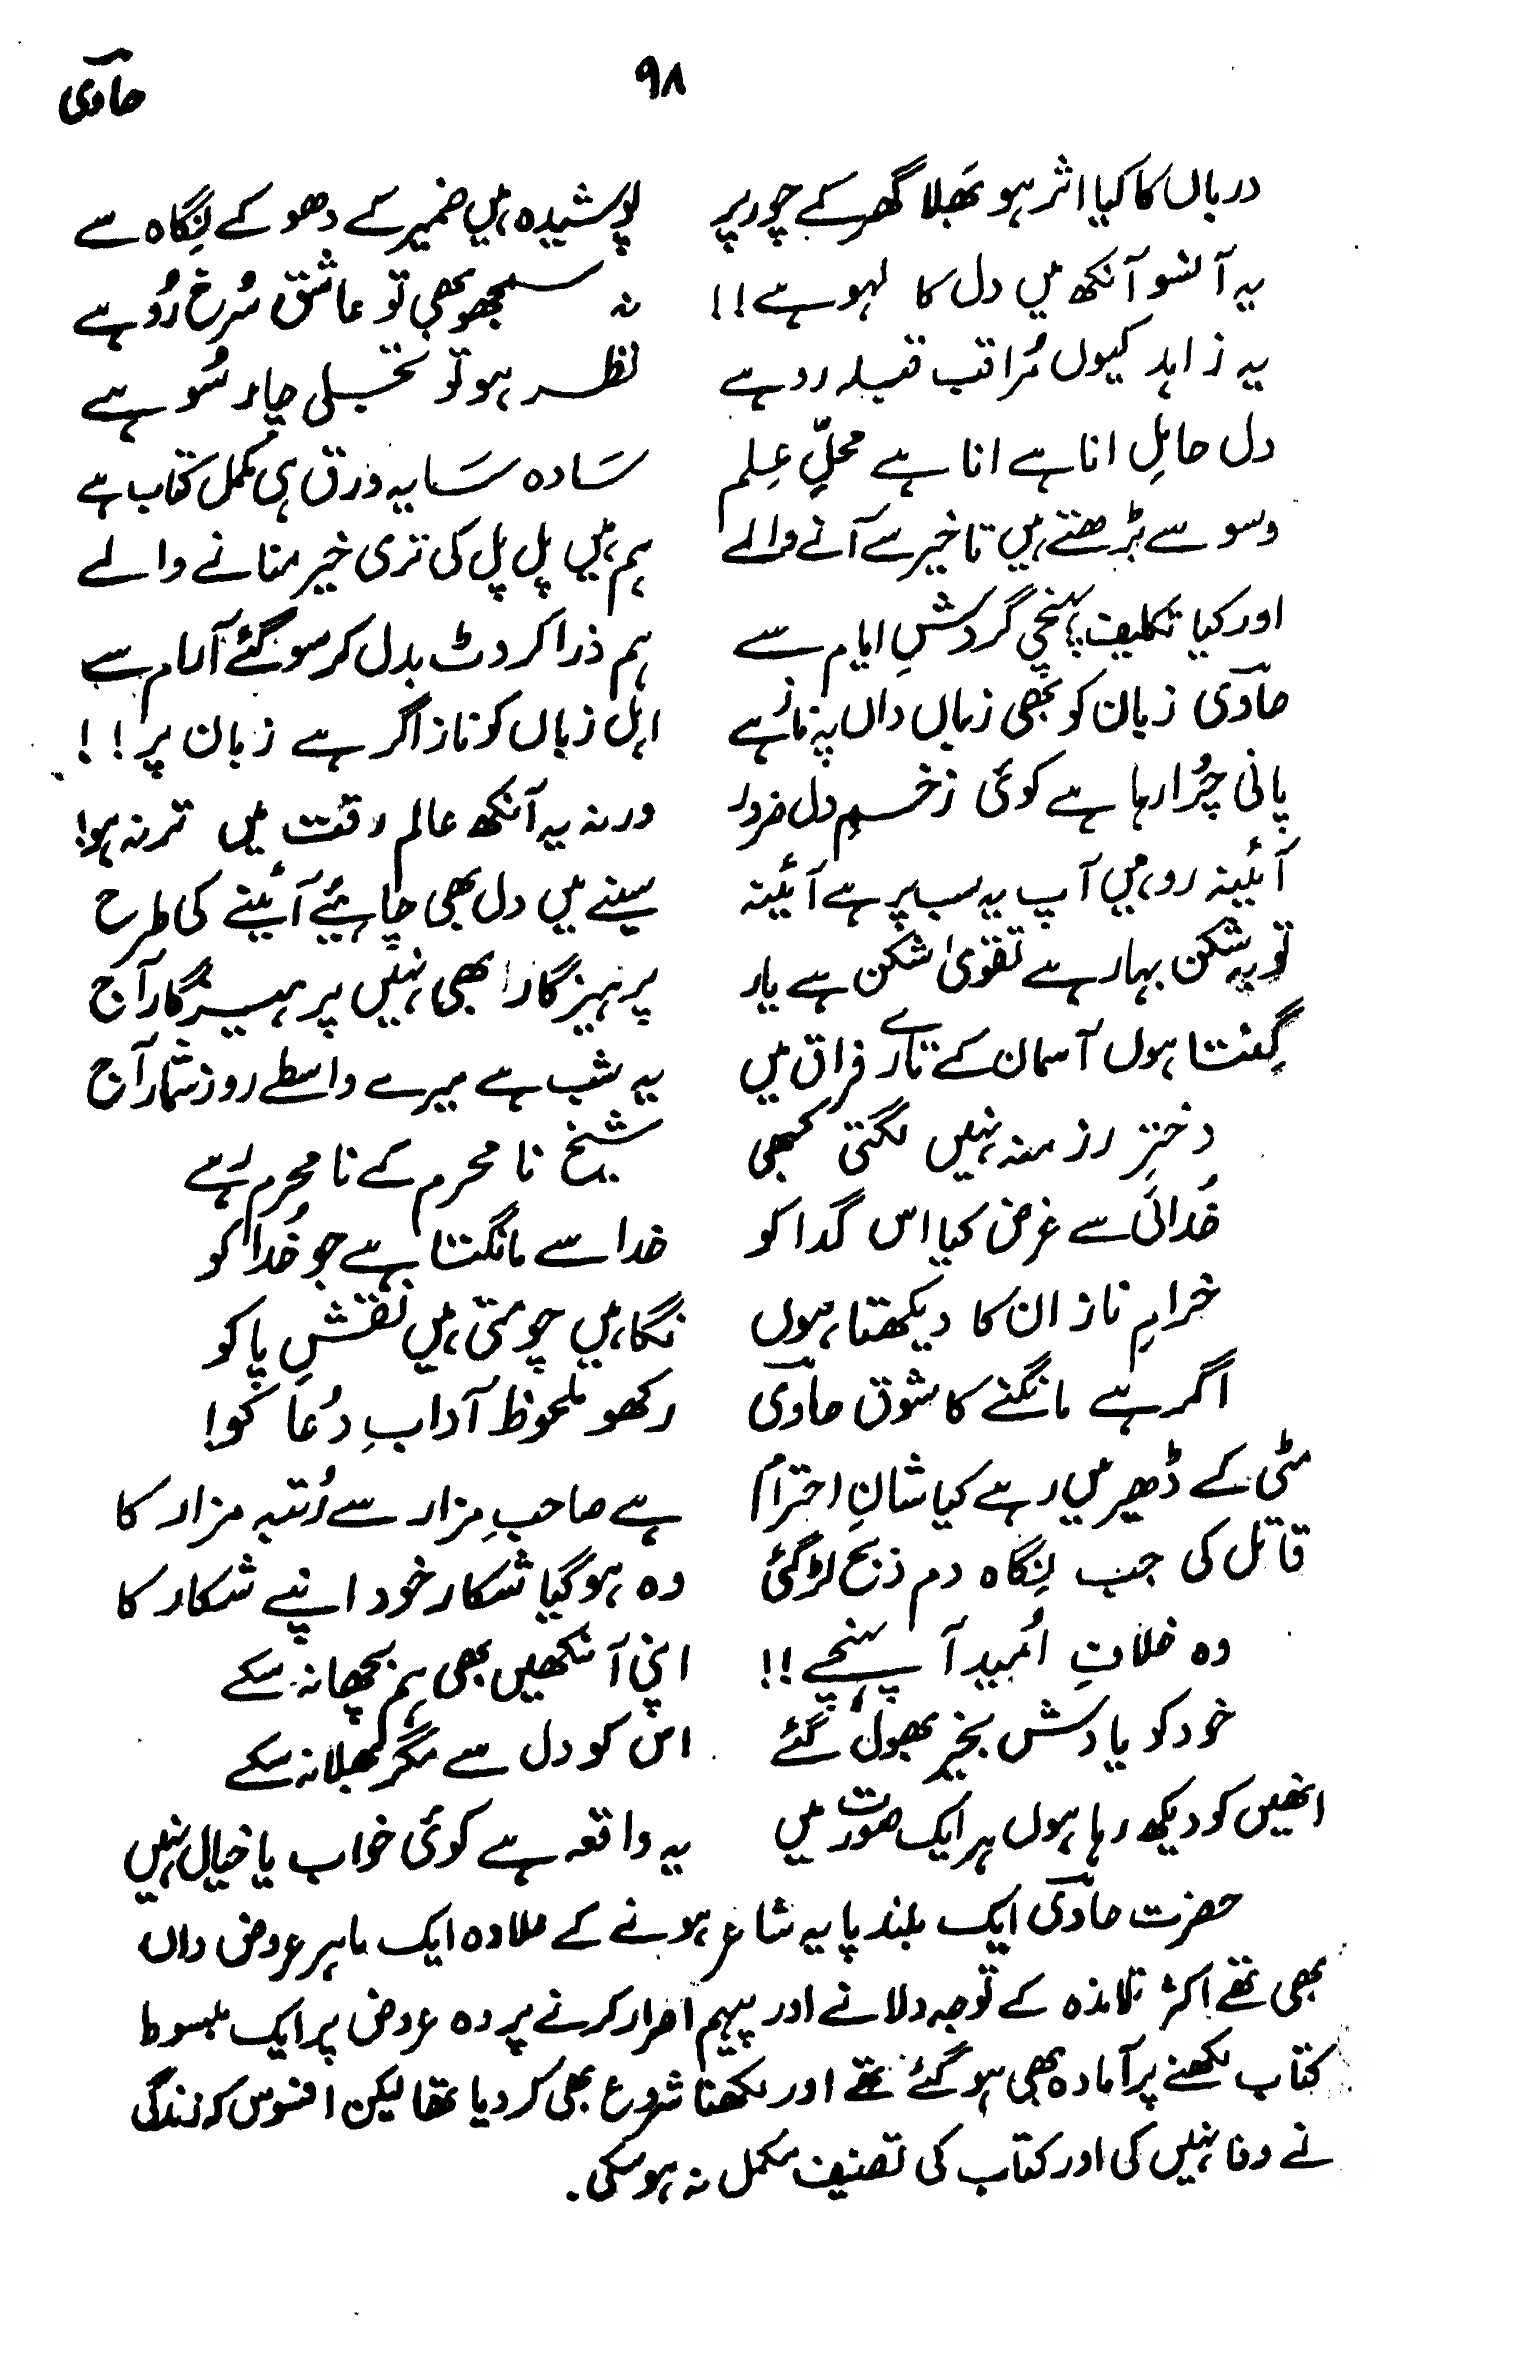 ۹۸ حاوی
درباں کا کیا اثر ہو بھَلا گھر کے چور پر پوشیدہ ہیں ضمیر کے دھوکے نِگاہ سے
یہ آنسو آنکھ میں دل کا لہو ہے!! نہ سمجھو بھی تو عاشق سُرخ رُو ہے
یہ زاہد کیوں مُراقب قبلہ رو ہے نظر ہو تو تجلی چار سُو ہے
دل حاملِ انا ہے انا ہے محلِّ عِلم سَادہ سَا یہ ورق ہی مکمل کتاب ہے
وسوسے بڑھتے ہیں تاخیر سے آنے والے ہم ہیں پل پل کی تری خیر منانے والے
اور کیا تکلیف پہنچی گردشِ ایام سے ہم ذرا کروٹ بدل کر سو گئے آرام سے
حاوی زبان کو بھی زباں داں پہ ناز ہے اہل زباں کو ناز اگر ہے زبان پر!!
پانی چُرا رہا ہے کوئی زخمِ دل ضرور ورنہ یہ آنکھ عالم رقت میں تر نہ ہو!
آئینہ رو ہیں آپ یہ سب پر ہے آئینہ سینے میں دل بھی چاہئیے آئینے کی طرح
توبہ شکن بہار ہے تقویٰ شکن ہے یار پرہیزگار بھی نہیں پرہیزگار آج
گِنتا ہوں آسمان کے تارے فراق میں یہ شب ہے میرے واسطے روز شمار آج
دخترِ رز منہ نہیں لگتی کبھی شیخ نا محرم کے نا محرم رہے
خُدائی سے غرض کیا اس گدا کو خدا سے مانگتا ہے جو خُدا کو
خرامِ ناز ان کا دیکھتا ہوں نگاہیں چومتی ہیں نقشِ پا کو
اگر ہے مانگنے کا شوق حاوی رکھو ملحوظ آدابِ دُعا کو!
مٹی کے ڈھیر میں رہے کیا شانِ احترام ہے صاحبِ مزار سے رُتبہ مزار کا
قاتل کی جب نِگاہ دم ذبح لڑ گئی وہ ہو گیا شکار خود اپنے شکار کا
وہ خلافِ اُمید آ پہنچے!! اپنی آنکھیں بھی ہم بچھا نہ سکے
خود کو یادش بخیر بھول گئے اس کو دل سے مگر بھلا نہ سکے
انھیں کو دیکھ رہا ہوں ہر ایک صورت میں یہ واقعہ ہے کوئی خواب یا خیال نہیں
حضرت حاوی ایک بلند پایہ شاعر ہونے کے علاوہ ایک ماہر عروض داں
بھی تھے اکثر تلامذہ کے توجہ دلانے اور پیہم اصرار کرنے پر وہ عروض پر ایک مبسوط
کتاب لکھنے پر آمادہ بھی ہو گئے تھے اور لکھنا شروع بھی کر دیا تھا لیکن افسوس کہ زندگی
نے وفا نہیں کی اور کتاب کی تصنیف مکمل نہ ہو سکی.